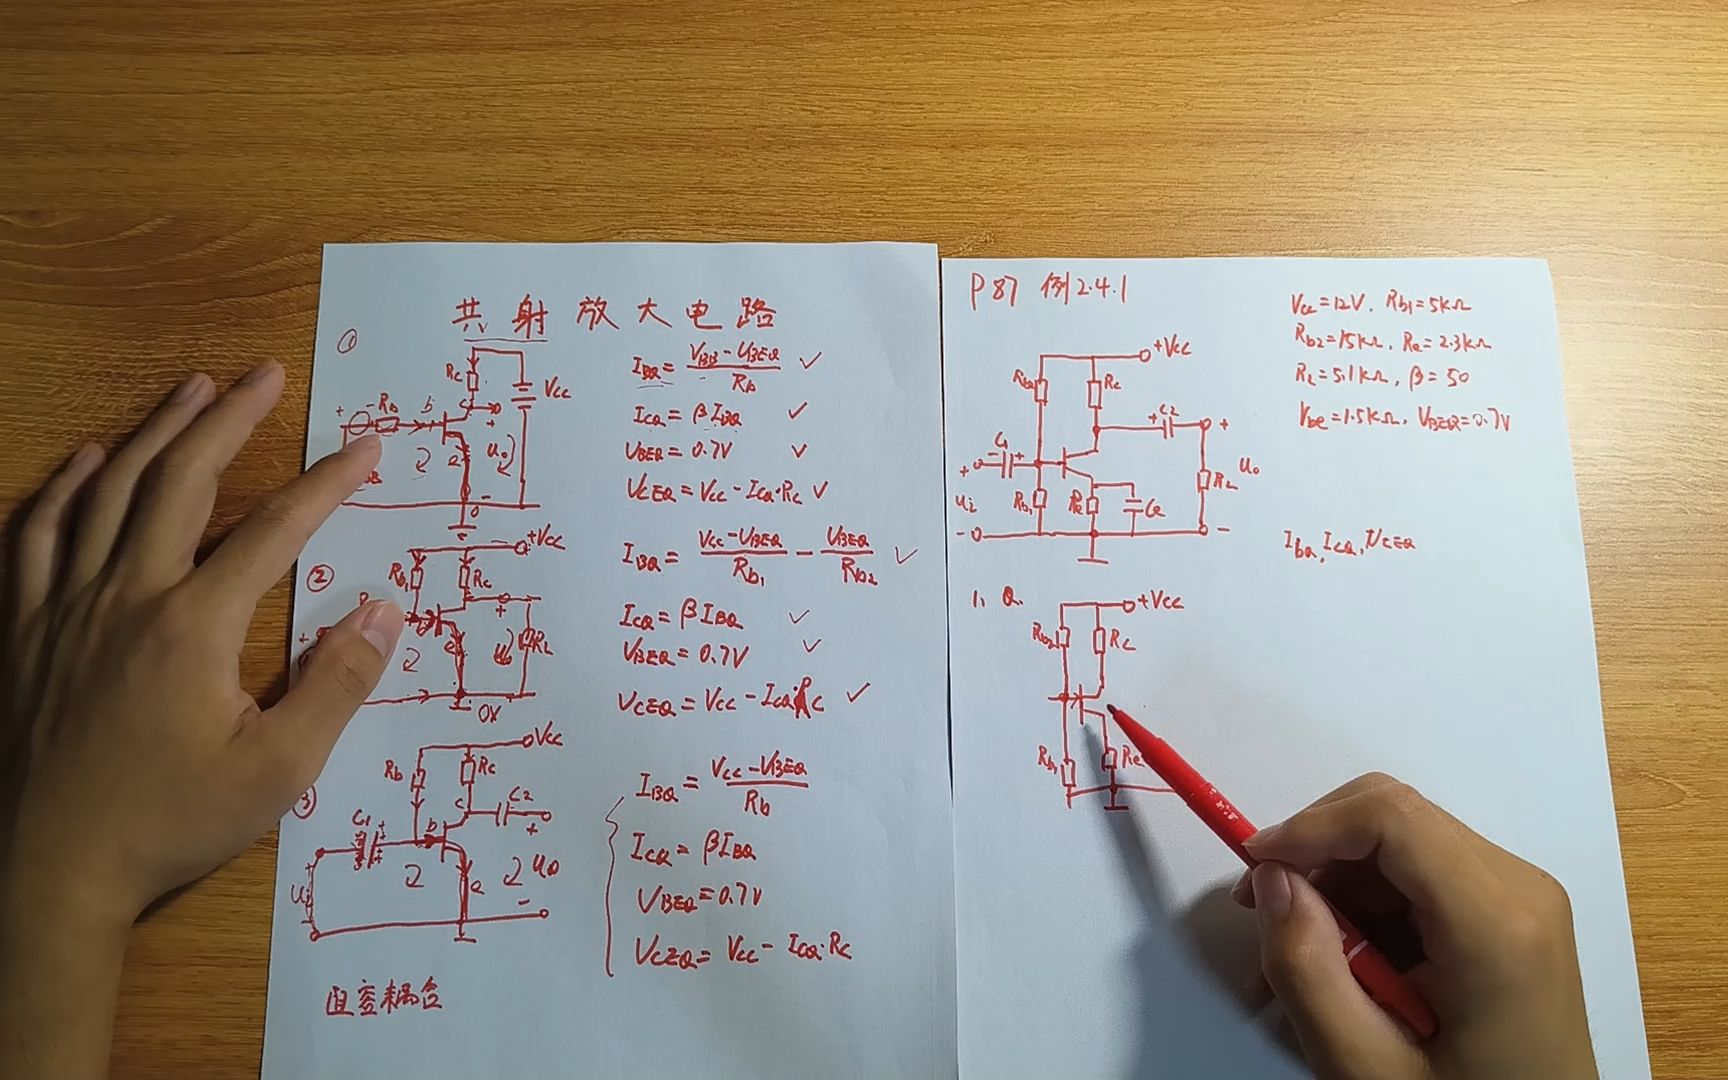 共射放大电路
①
Rc
Vcc
+
Rb
b
c
e
u₀
+
-
I_BQ = (V_BB - U_BEQ) / Rb ✓
I_CQ = β I_BQ ✓
U_BEQ = 0.7V ✓
U_CEQ = Vcc - I_CQ·Rc ✓
②
+Vcc
Rb₁
Rc
RL
+
0V
I_BQ = (Vcc - U_BEQ) / Rb₁ - U_BEQ / Rb₂ ✓
I_CQ = β I_BQ ✓
U_BEQ = 0.7V ✓
U_CEQ = Vcc - I_CQ·Rc ✓
③
Vcc
Rb
Rc
C₁
C₂
b
c
e
+
-
u₀
I_BQ = (Vcc - U_BEQ) / Rb
I_CQ = β I_BQ
U_BEQ = 0.7V
U_CEQ = Vcc - I_CQ·Rc
阻容耦合
P87 例2.4.1
Vcc = 12V. Rb₁ = 5kΩ
Rb₂ = 15kΩ. Re = 2.3kΩ
RL = 5.1kΩ, β = 50
rbe = 1.5kΩ, U_BEQ = 0.7V
+Vcc
Rb₂
Rc
C₁
+C₂
+
Rb₁
Re
Ce
RL
u₀
+
ui
-
-
I_BQ, I_CQ, U_CEQ
1. Q.
+Vcc
Rb₂
Rc
Rb₁
Re